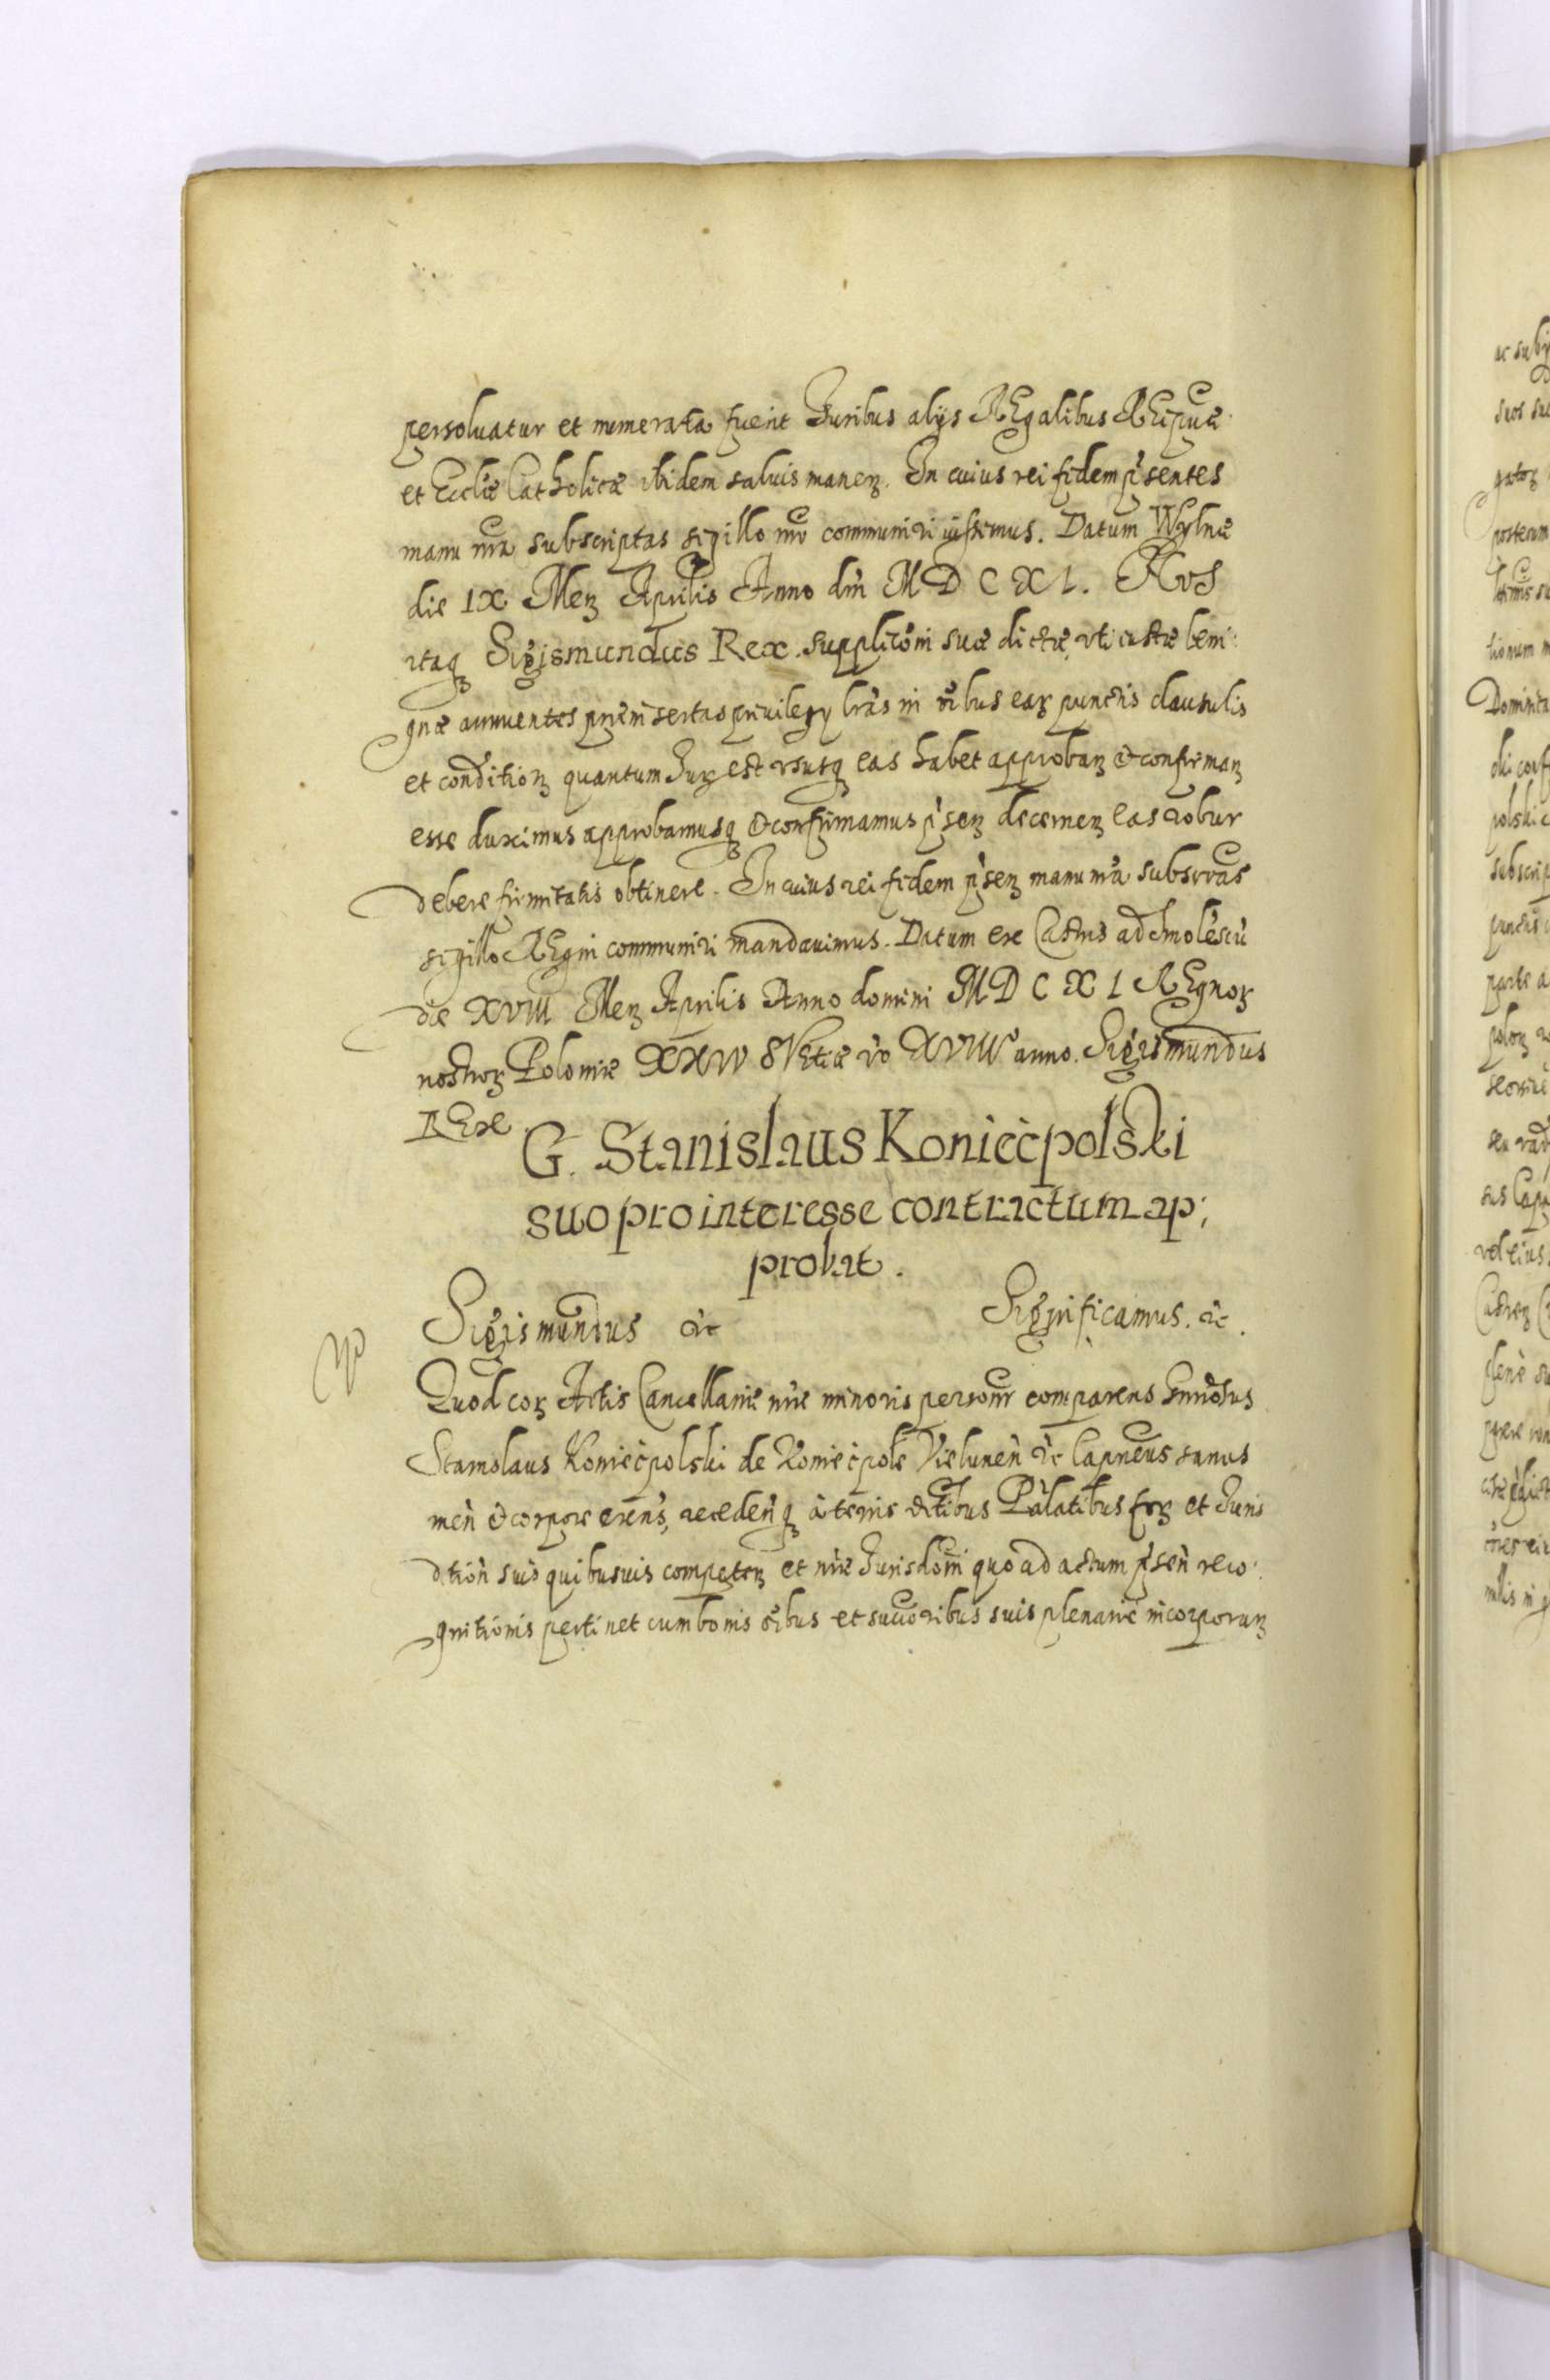 persoluatur et numerata fuerit Juribus alÿs REgalibus REipuæ
et Eccliæ Catholicæ ibidem saluis manenꝫ. In cuius rei fidem p̃sentes
manu nr̃a subscriptas sigillo nr̃o communiri iussimus. Datum Wylnæ
die IX Menꝫ Aprilis Anno dñi MDCXI. Nos
itaqꝫ Sigismundus Rex. supplicõni suæ dictæ, uti iustæ beni:
gnæ annuentes prñeinsertas priuilegy lr̃as in oĩbus earꝫ punctis clausulis
et conditionꝫ quantum Juris est ususqꝫ eas habet approbanꝫ & confirmanꝫ
esse duximus approbamusqꝫ & confirmamus p̃senꝫ decernenꝫ eas robur
debere firmitatis obtinere. In cuius rei fidem p̃senꝫ manu nr̃a subscr̃as
sigillo REgni communiri mandauimus. Datum ex Castris ad Smolẽscũ
die XVIII Menꝫ Aprilis Anno domini MDCXI REgnorꝫ
nostrorꝫ Poloniæ XXIV SVEtiæ v̀o XVIII anno. Sigismundus
REx.
G. Stanislaus Koniècpolski
suo pro interesse contractum ap:
probat.
Sigismundus &c Significamus. &c.
Quod corꝫ Actis Cancellariæ nr̃æ minoris personr̃ comparens Gnr̃osus
Stanislaus Koniècpolski de Koniècpole Vielunen̄ &c Capneus sanus
men̄ & corpore exens, recedenꝫqꝫ à terris Palatibus Forꝫ et Juris
dition̄ suis quibusuis competenꝫ et nr̃æ Jurisdõni quo ad actum p̃sen̄ reco:
gnitionis pertinet cum bonis oĩbus et succ̃oribus suis plenariè incorporanꝫ